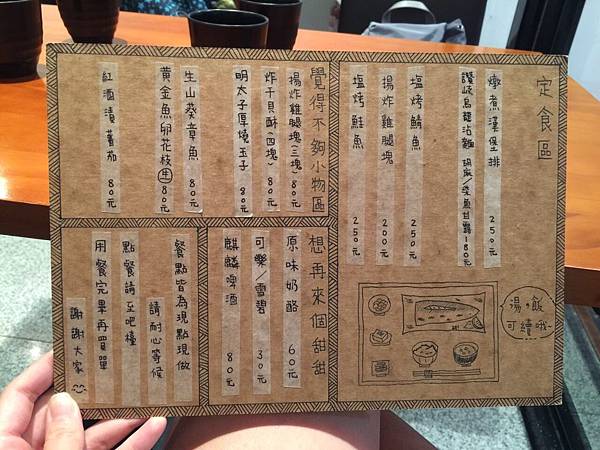 定食區
燉煮漢堡排 250元
讚岐烏龍沾麵 胡麻/柴魚甘露 180元
塩烤鯖魚 250元
揚炸雞腿塊 200元
塩烤鮭魚 250元
湯、飯
可續哦~
覺得不夠小物區
揚炸雞腿塊(三塊) 80元
炸干貝酥(四塊) 80元
明太子厚燒玉子 80元
生山葵章魚 80元
黃金魚卵花枝 生 80元
紅酒漬蕃茄 80元
想再來個甜甜
原味奶酪 60元
可樂/雪碧 30元
麒麟啤酒 80元
餐點皆為現點現做
請耐心等候
點餐請至吧檯
用餐完畢再買單
謝謝大家